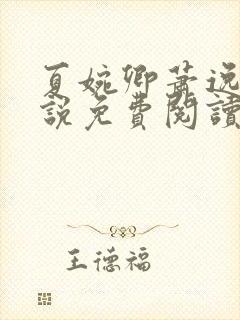 夏婉卿蕭逸
說免費閱讀
王德福